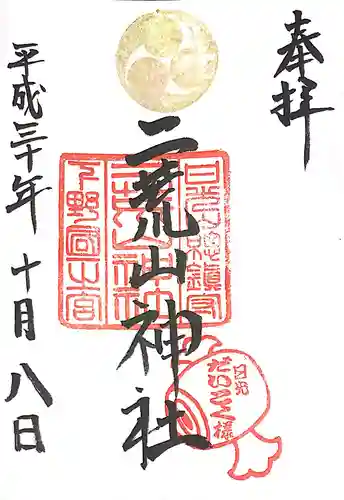 奉拝
二荒山神社
日光総鎮守
二荒山神社
下野國一之宮
日光
だいこく様
平成三十年 十月 八日